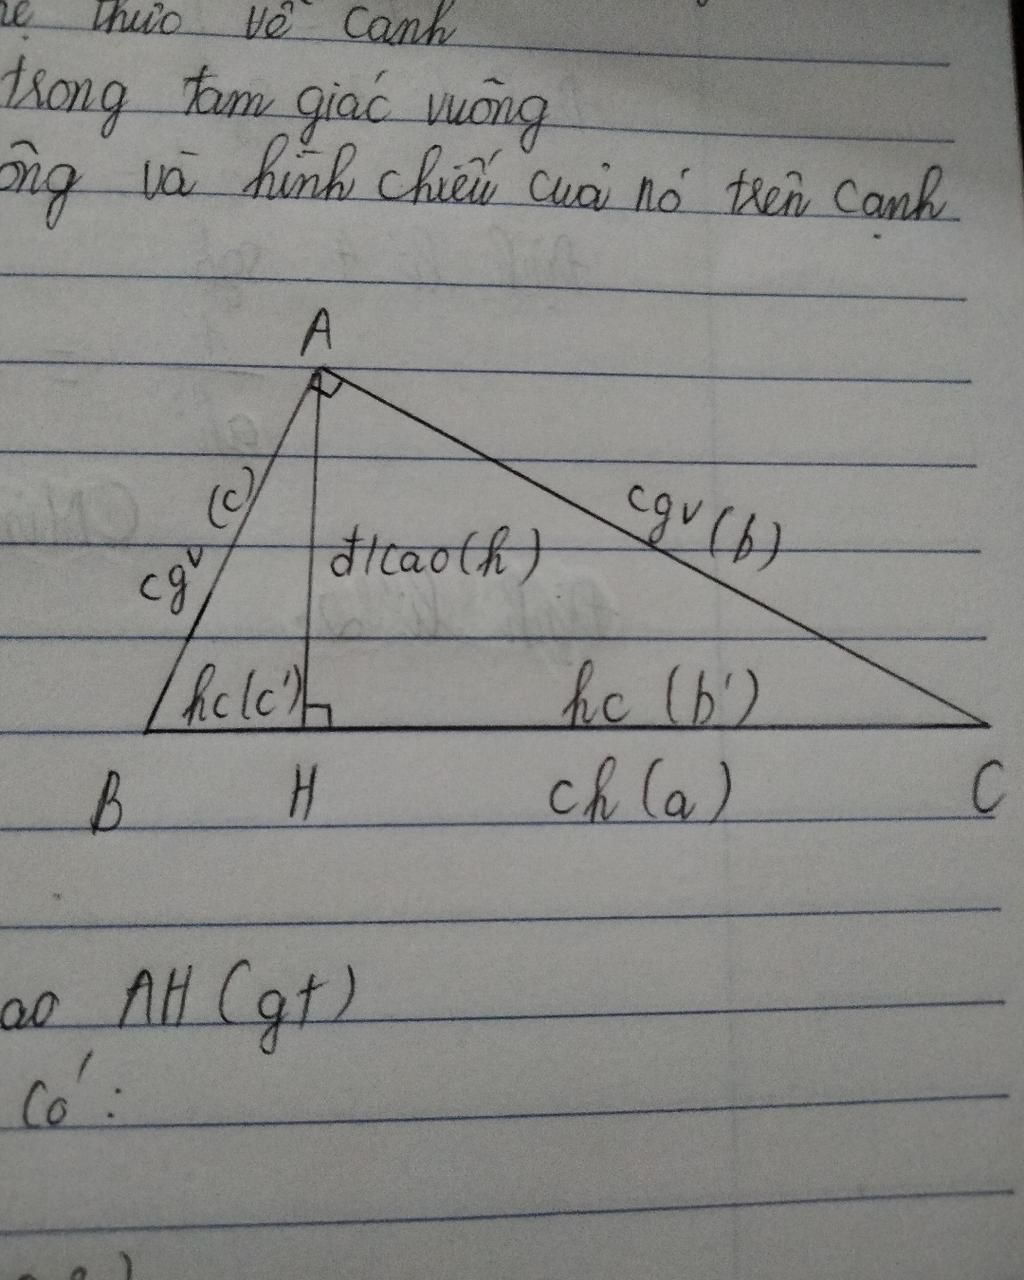 thức về cạnh
trong tam giác vuông
ông và hình chiếu của nó trên cạnh
A
(c)
cgv
cgv (b)
đ/cao (h)
hc (c')
hc (b')
B
H
ch (a)
C
ao AH (gt)
Có: